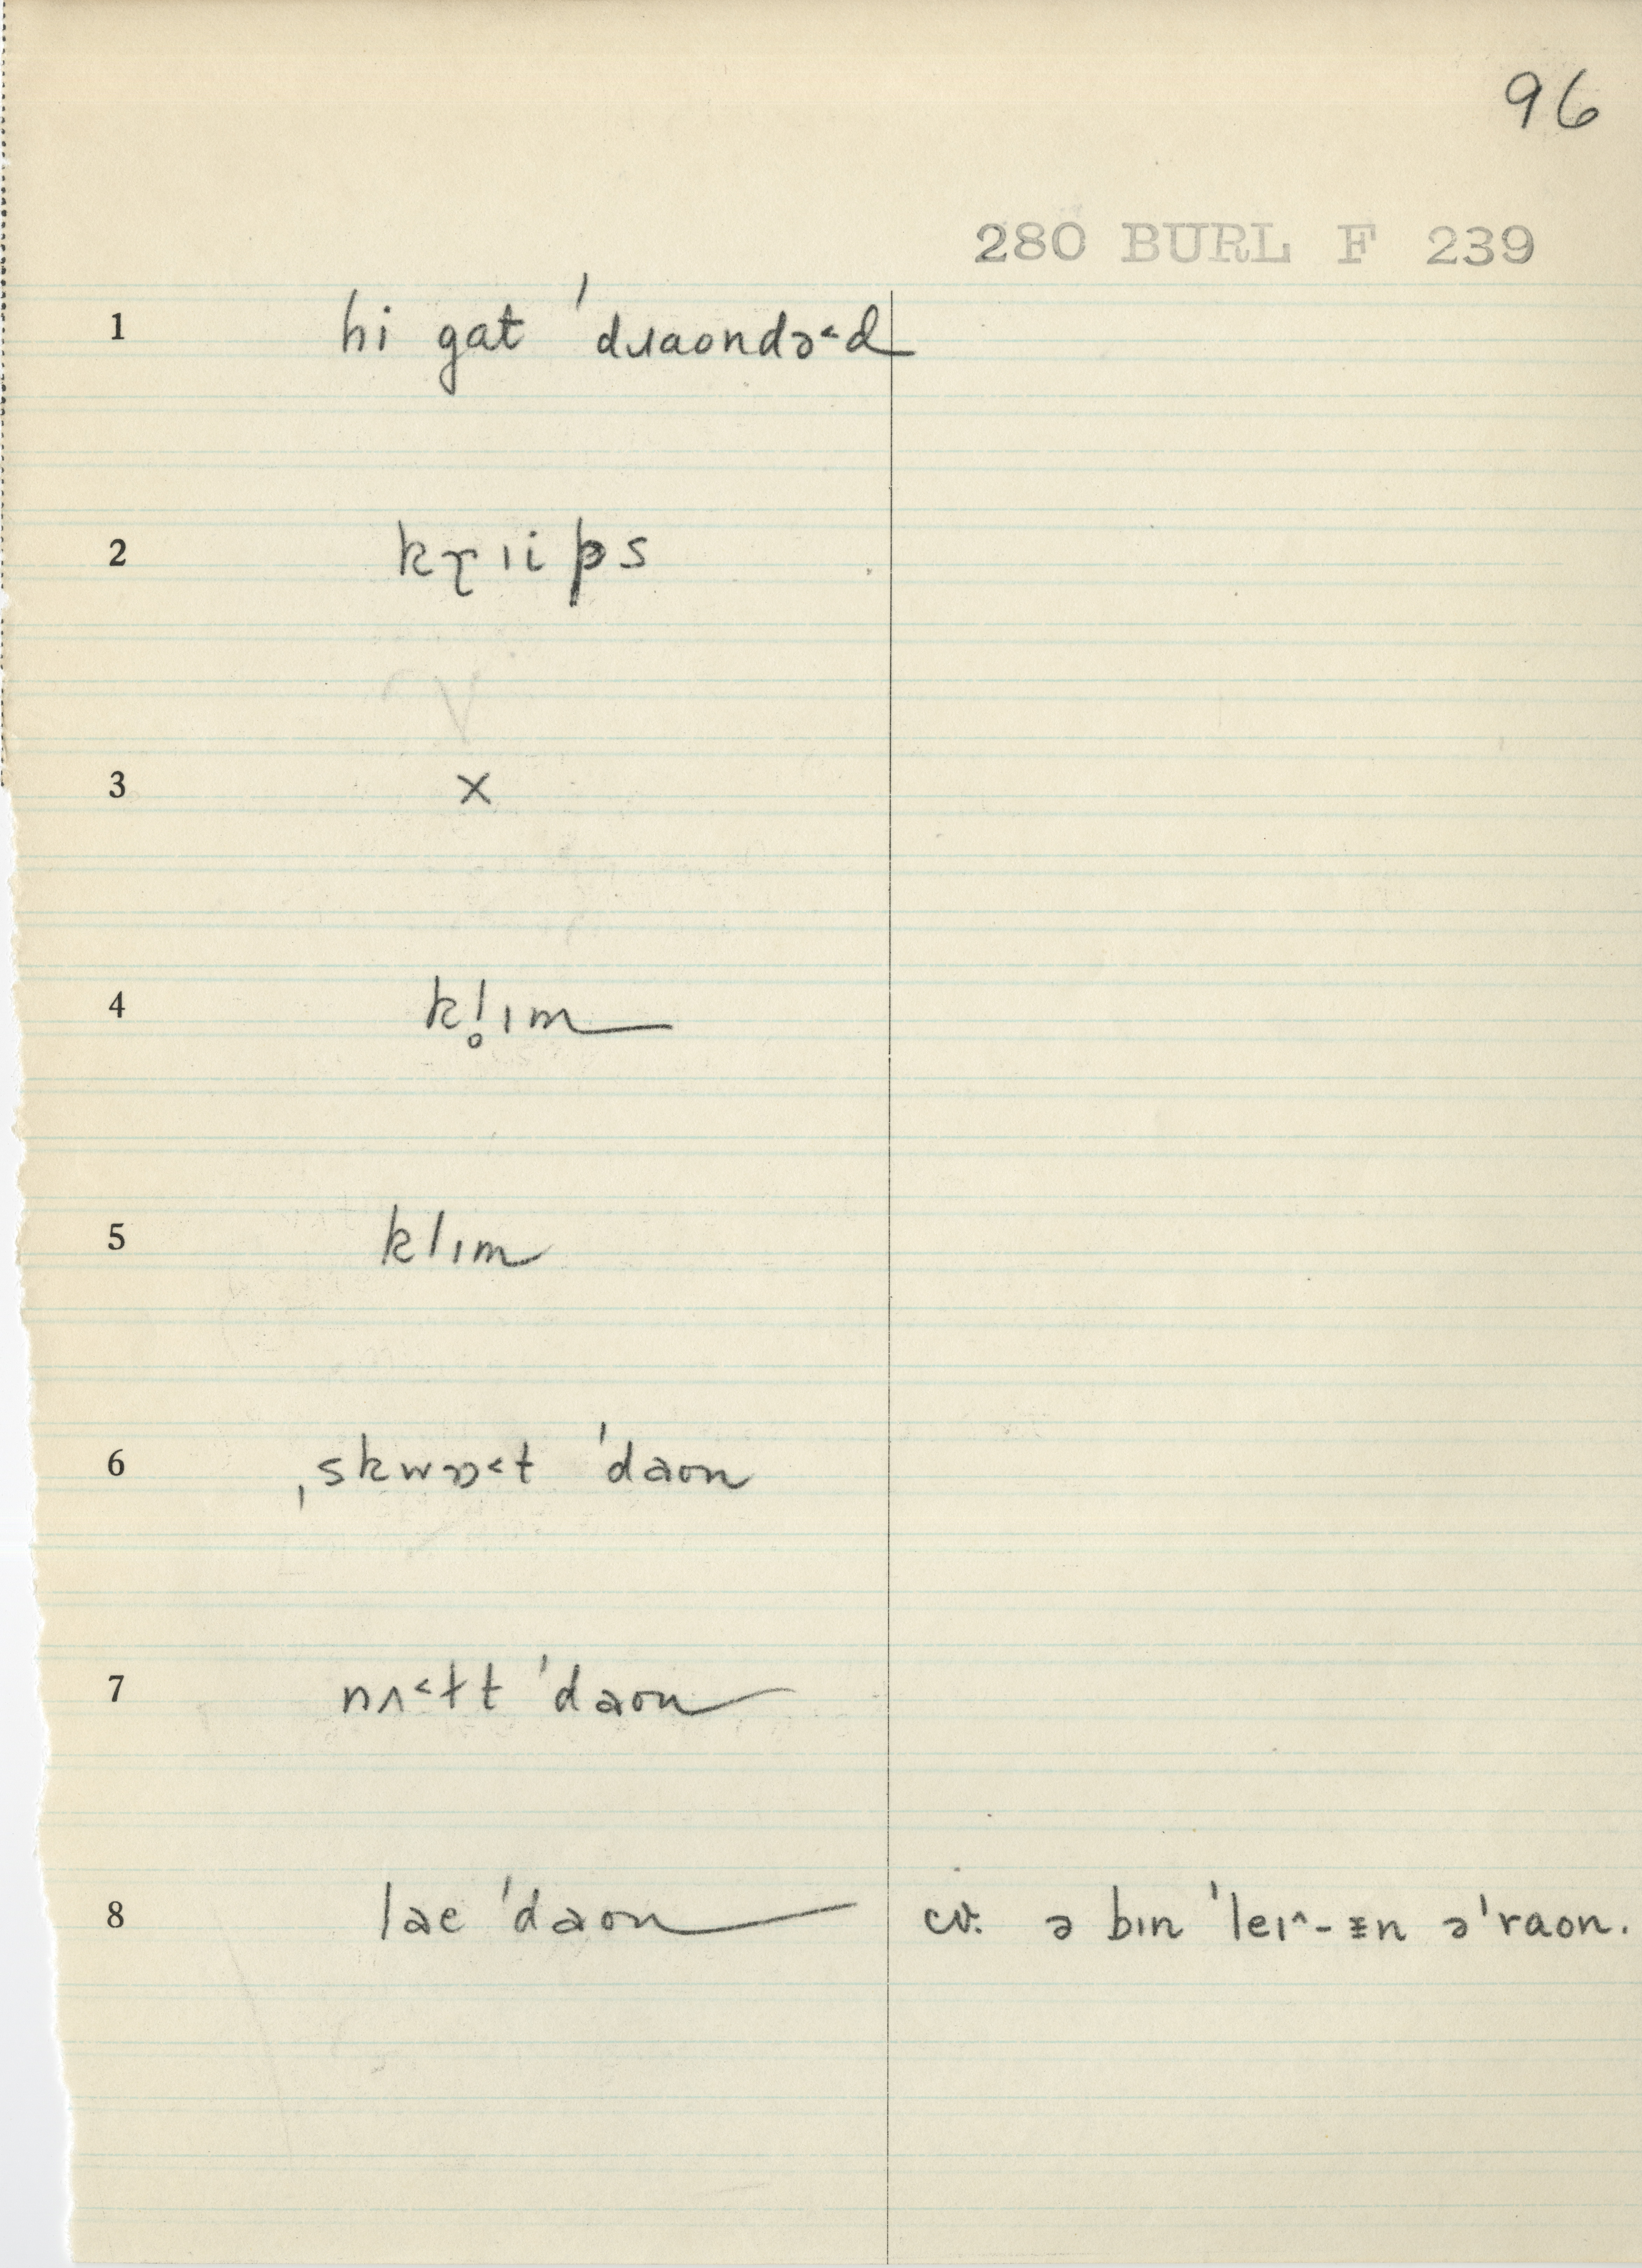 96
280 BURL F 239
1 hi gat ˈdɹaondə˂d
2 kɽɪips
3 ×
4 kl̥ɪm
5 klɪm
6 ˌskwɒ˂t ˈdaon
7 nʌ˂tt ˈdaon
8 lae ˈdaon cv. ə bɪn ˈleɪ^-ᵻn əˈraon.